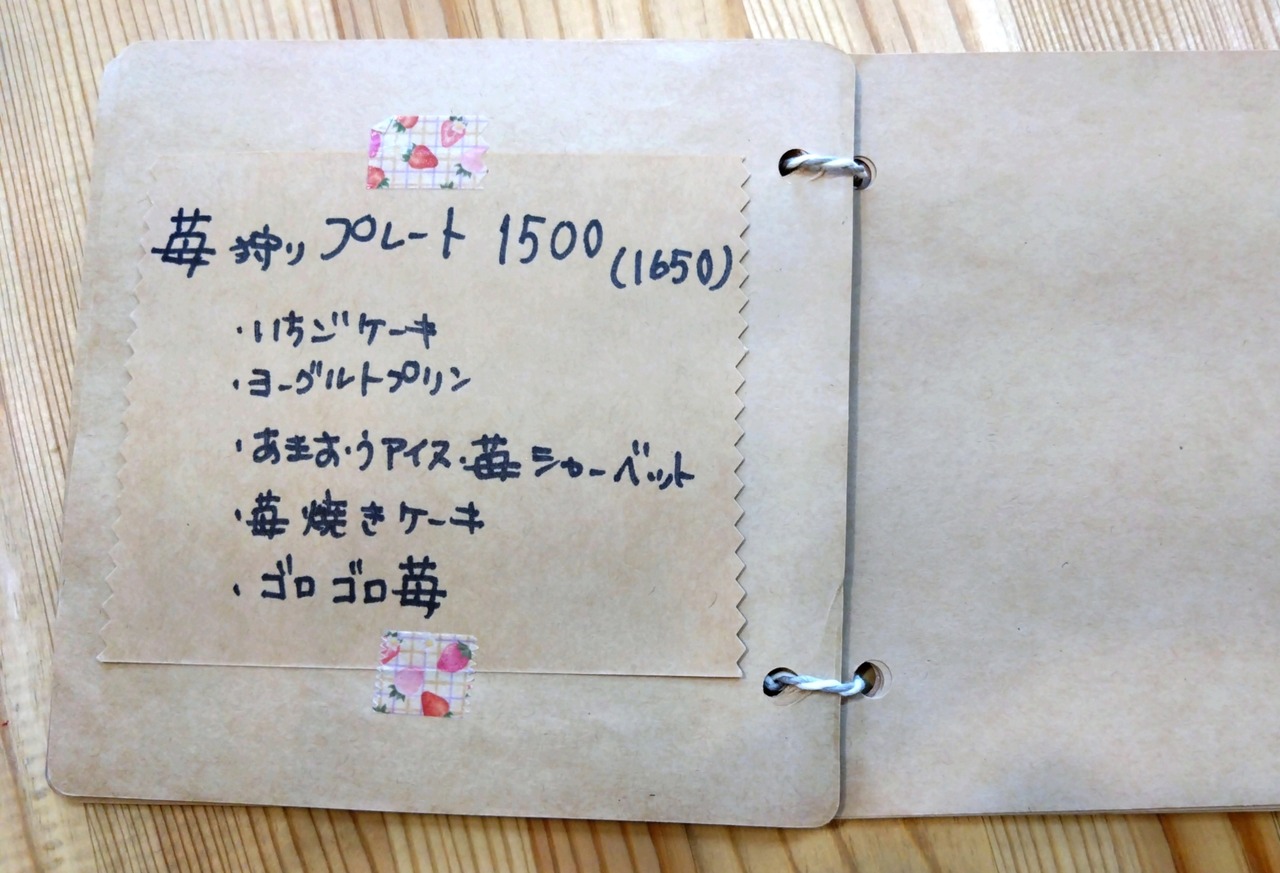 苺狩りプレート 1500 (1650)
・いちごケーキ
・ヨーグルトプリン
・あまおうアイス・苺シャーベット
・苺焼きケーキ
・ゴロゴロ苺